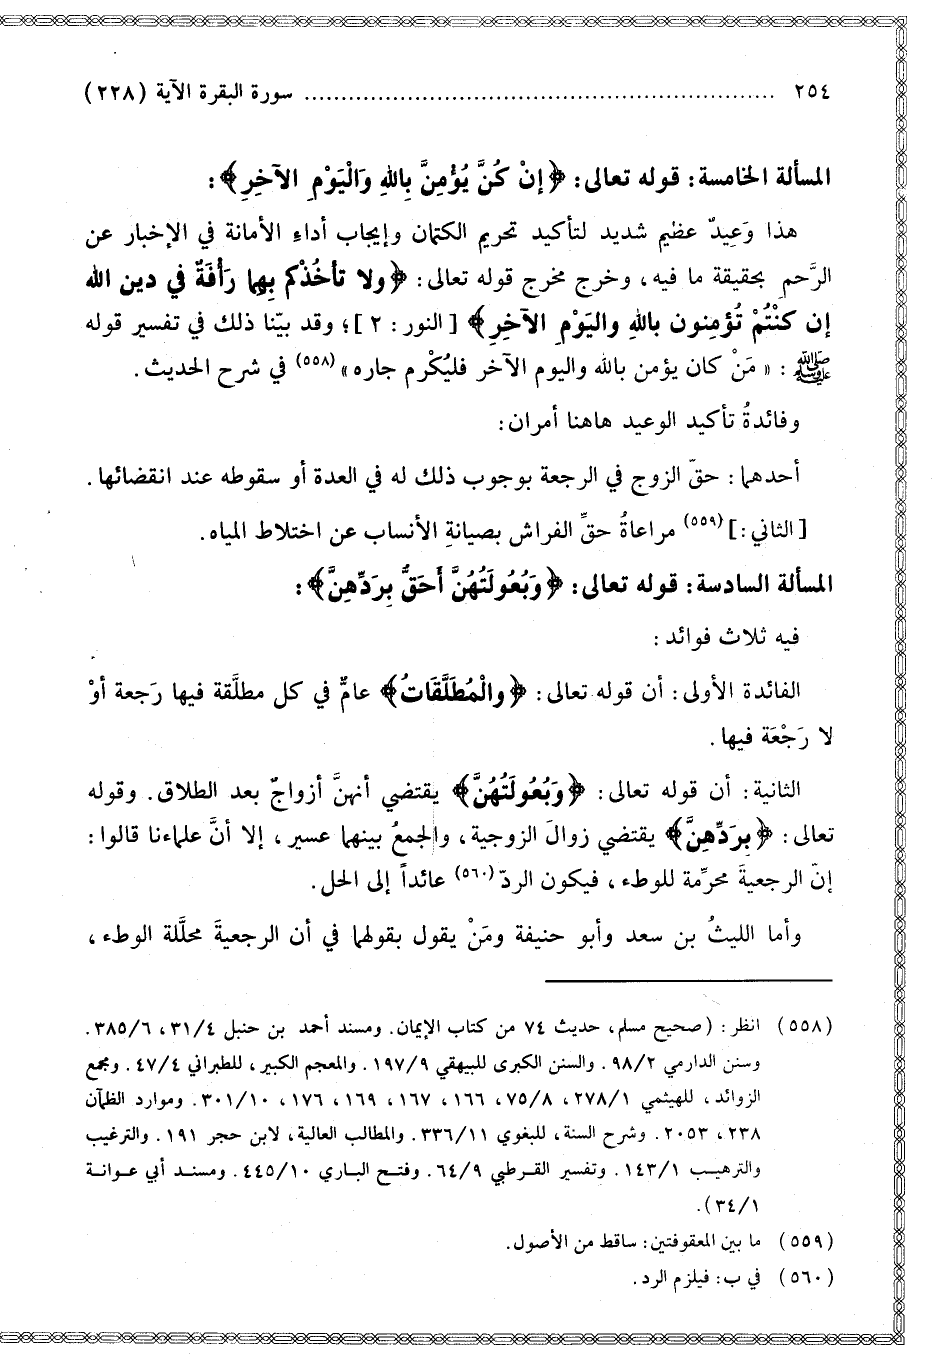 ٢٥٤ ................................................................ سورة البقرة الآية (٢٢٨)
المسألة الخامسة: قوله تعالى: ﴿إنْ كُنَّ يُؤْمِنَّ بِاللهِ وَالْيَوْمِ الآخِرِ﴾:
هذا وَعِيدٌ عظيم شديد لتأكيد تحريم الكتمان وإيجاب أداءِ الأمانة في الإخبار عن
الرَّحمِ بحقيقة ما فيه، وخرج مخرج قوله تعالى: ﴿ولا تأخُذْكم بِهما رَأْفَةٌ في دين الله
إن كنْتُمْ تُؤْمِنون بالله واليَوْمِ الآخِرِ﴾ [النور: ٢]؛ وقد بيّنا ذلك في تفسير قوله
ﷺ: «مَنْ كان يؤمن بالله واليوم الآخر فليُكْرم جاره»(٥٥٨) في شرح الحديث.
وفائدةُ تأكيد الوعيد هاهنا أمران:
أحدهما: حقّ الزوج في الرجعة بوجوب ذلك له في العدة أو سقوطه عند انقضائها.
[الثاني:](٥٥٩) مراعاةُ حقِّ الفراش بصيانةِ الأنساب عن اختلاط المياه.
المسألة السادسة: قوله تعالى: ﴿وَبُعُولَتُهُنَّ أَحَقُّ بِرَدِّهِنَّ﴾:
فيه ثلاث فوائد:
الفائدة الأولى: أن قوله تعالى: ﴿والْمُطَلَّقَاتُ﴾ عامٌّ في كل مطلَّقة فيها رَجعة أوْ
لا رَجْعَة فيها.
الثانية: أن قوله تعالى: ﴿وَبُعُولَتُهُنَّ﴾ يقتضي أنهنَّ أزواجٌ بعد الطلاق. وقوله
تعالى: ﴿بِرَدِّهِنَّ﴾ يقتضي زوالَ الزوجية، والجمعُ بينهما عسير، إلا أنَّ علماءنا قالوا:
إنّ الرجعيةَ محرِّمة للوطء، فيكون الردّ(٥٦٠) عائداً إلى الحل.
وأما الليثُ بن سعد وأبو حنيفة ومَنْ يقول بقولهما في أن الرجعيةَ محلَّلة الوطء،
(٥٥٨) انظر: (صحيح مسلم، حديث ٧٤ من كتاب الإيمان. ومسند أحمد بن حنبل ٣١/٤، ٣٨٥/٦.
وسنن الدارمي ٩٨/٢. والسنن الكبرى للبيهقي ١٩٧/٩. والمعجم الكبير، للطبراني ٤٧/٤. ومجمع
الزوائد، للهيثمي ٢٧٨/١، ٧٥/٨، ١٦٦، ١٦٧، ١٦٩، ١٧٦، ٣٠١/١٠. وموارد الظمآن
٢٣٨، ٢٠٥٣. وشرح السنة، للبغوي ٣٣٦/١١. والمطالب العالية، لابن حجر ١٩١. والترغيب
والترهيب ١٤٣/١. وتفسير القرطبي ٦٤/٩. وفتح الباري ٤٤٥/١٠. ومسند أبي عوانة
٣٤/١).
(٥٥٩) ما بين المعقوفتين: ساقط من الأصول.
(٥٦٠) في ب: فيلزم الرد.